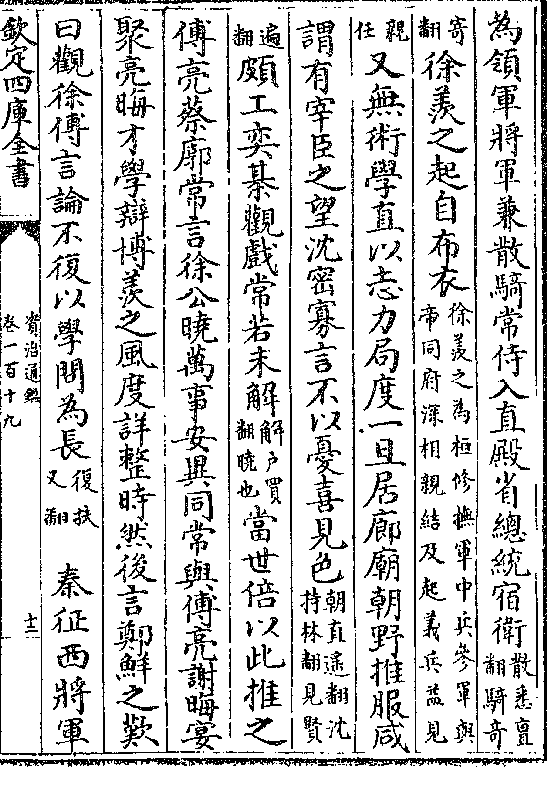 為領軍將軍兼散騎常侍入直殿省總統宿衛散悉亶翻騎奇
寄翻徐羨之起自布衣徐羨之為桓修撫軍中兵參軍與帝同府深相親結及起義兵益見
親任又無術學直以志力局度一旦居廊廟朝野推服咸
謂有宰臣之望沈密寡言不以憂喜見色朝直遙翻沈持林翻見賢
遍翻頗工奕棊觀戲常若未解解户買翻曉也當世倍以此推之
傅亮蔡廓常言徐公曉萬事安異同常與傅亮謝晦宴
聚亮晦才學辯博羨之風度詳整時然後言鄭鮮之歎
曰觀徐傅言論不復以學問為長復扶又翻 秦征西將軍
欽定四庫全書
資治通鑑
卷一百十九
十二